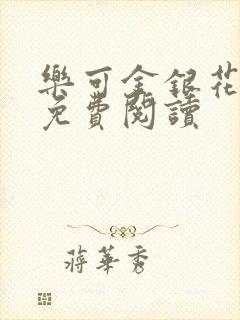 樂可金銀花
免費閱讀
蔣華秀